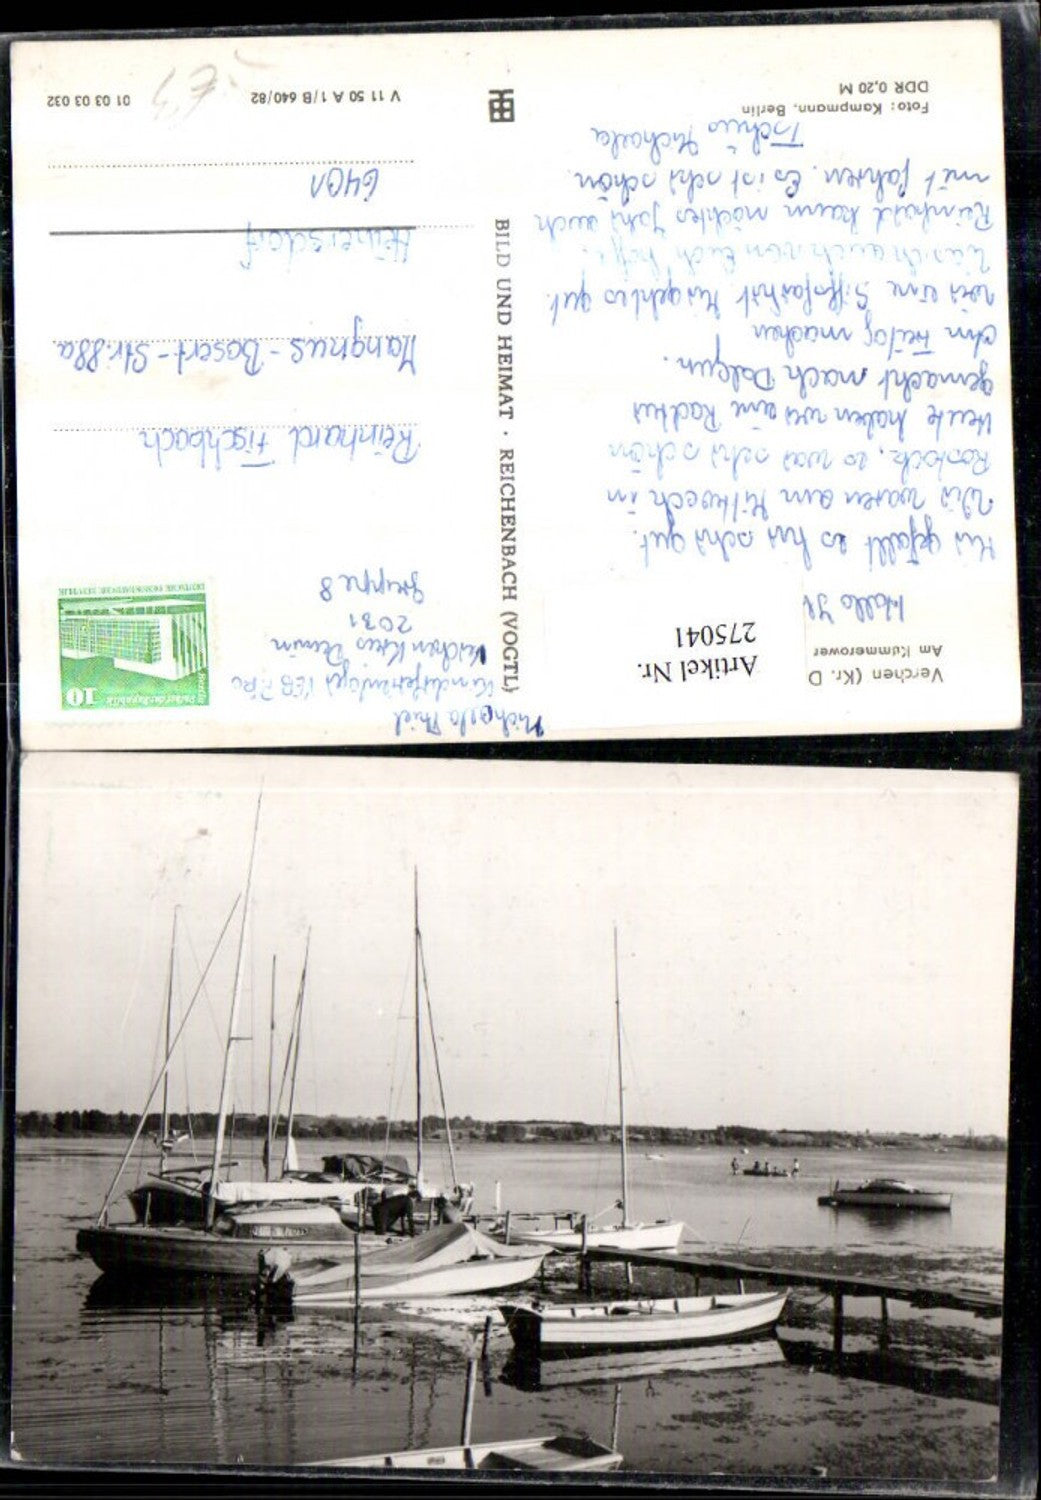 Verchen (Kr. D
Am Kummerower
Artikel Nr.
275041
Hallo
Mir gefällt es hier sehr gut.
Wir waren am Mittwoch in
Rostock, es war sehr schön
Heute haben wir eine Radtur
gemacht nach Dargun.
Am Freitag machen
wir eine Schiffsfahrt. Mir geht es gut.
was ich auch von Euch hoffe.
Reinhard kann nächstes Jahr auch
mit fahren. Es ist sehr schön.
Tschüs Michaela
Foto: Kampmann, Berlin
DDR 0,20 M
BILD UND HEIMAT · REICHENBACH (VOGTL)
Michaela Thiel
Kinderferienlager VEB
Verchen Kreis Demmin
2031
Gruppe 8
Berlin
Palast der Republik
10
DEUTSCHE DEMOKRATISCHE REPUBLIK
Reinhard Fischbach
Mangnus-Bosert-Str. 88a
Heinersdorf
6401
V 11 50 A 1/B 640/82
01 03 03 032